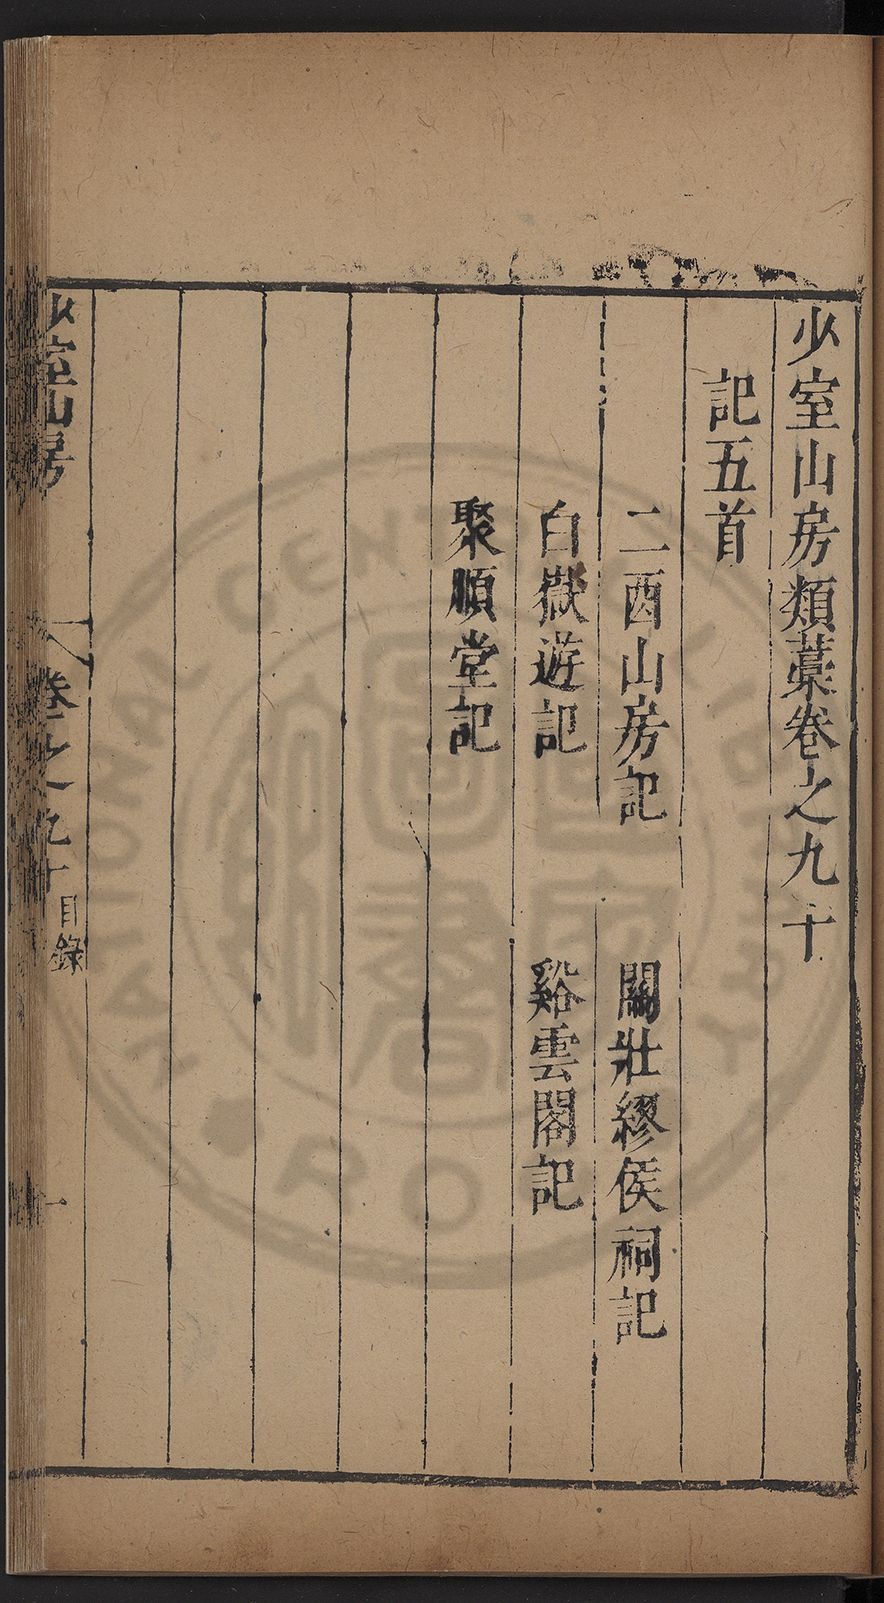 少室山房類藁卷之九十
記五首
二酉山房記 關壯繆侯祠記
白嶽遊記 谿雲閣記
聚順堂記
少室山房 卷之九十 目錄 一